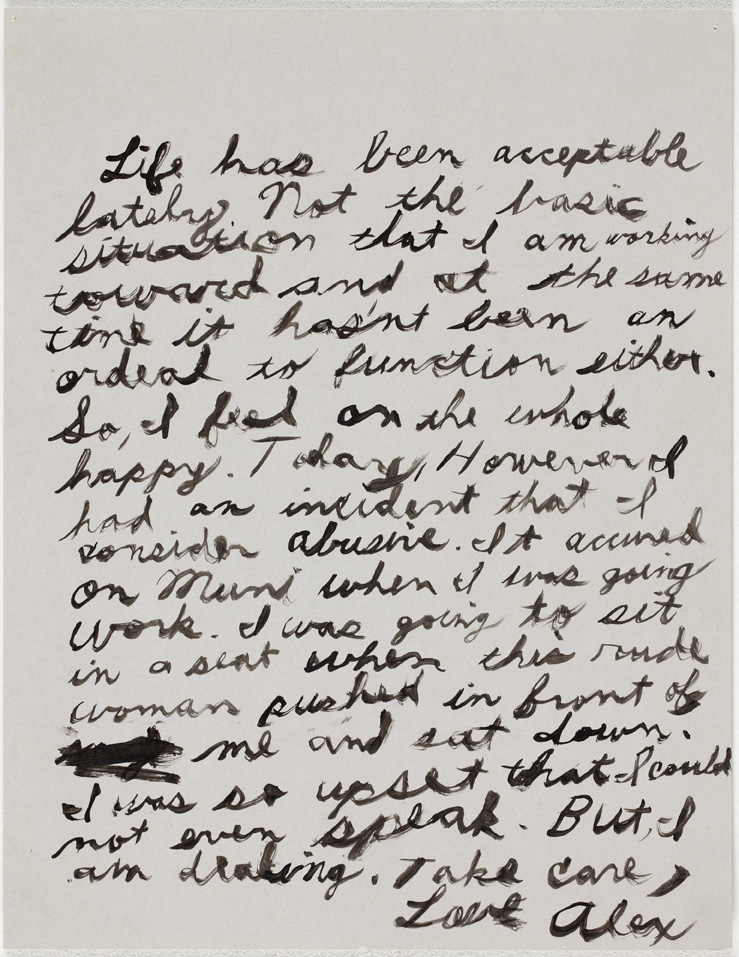 Life has been acceptable
lately. Not the basic
situation that I am working
toward and at the same
time it hasn't been an
ordeal to function either.
So, I feel on the whole
happy. Today, However I
had an incident that I
consider abusive. It accured
on Muni when I was going
work. I was going to sit
in a seat when this rude
woman pushed in front of
me and sat down.
I was so upset that I could
not even speak. But, I
am dealing. Take care,
Love Alex